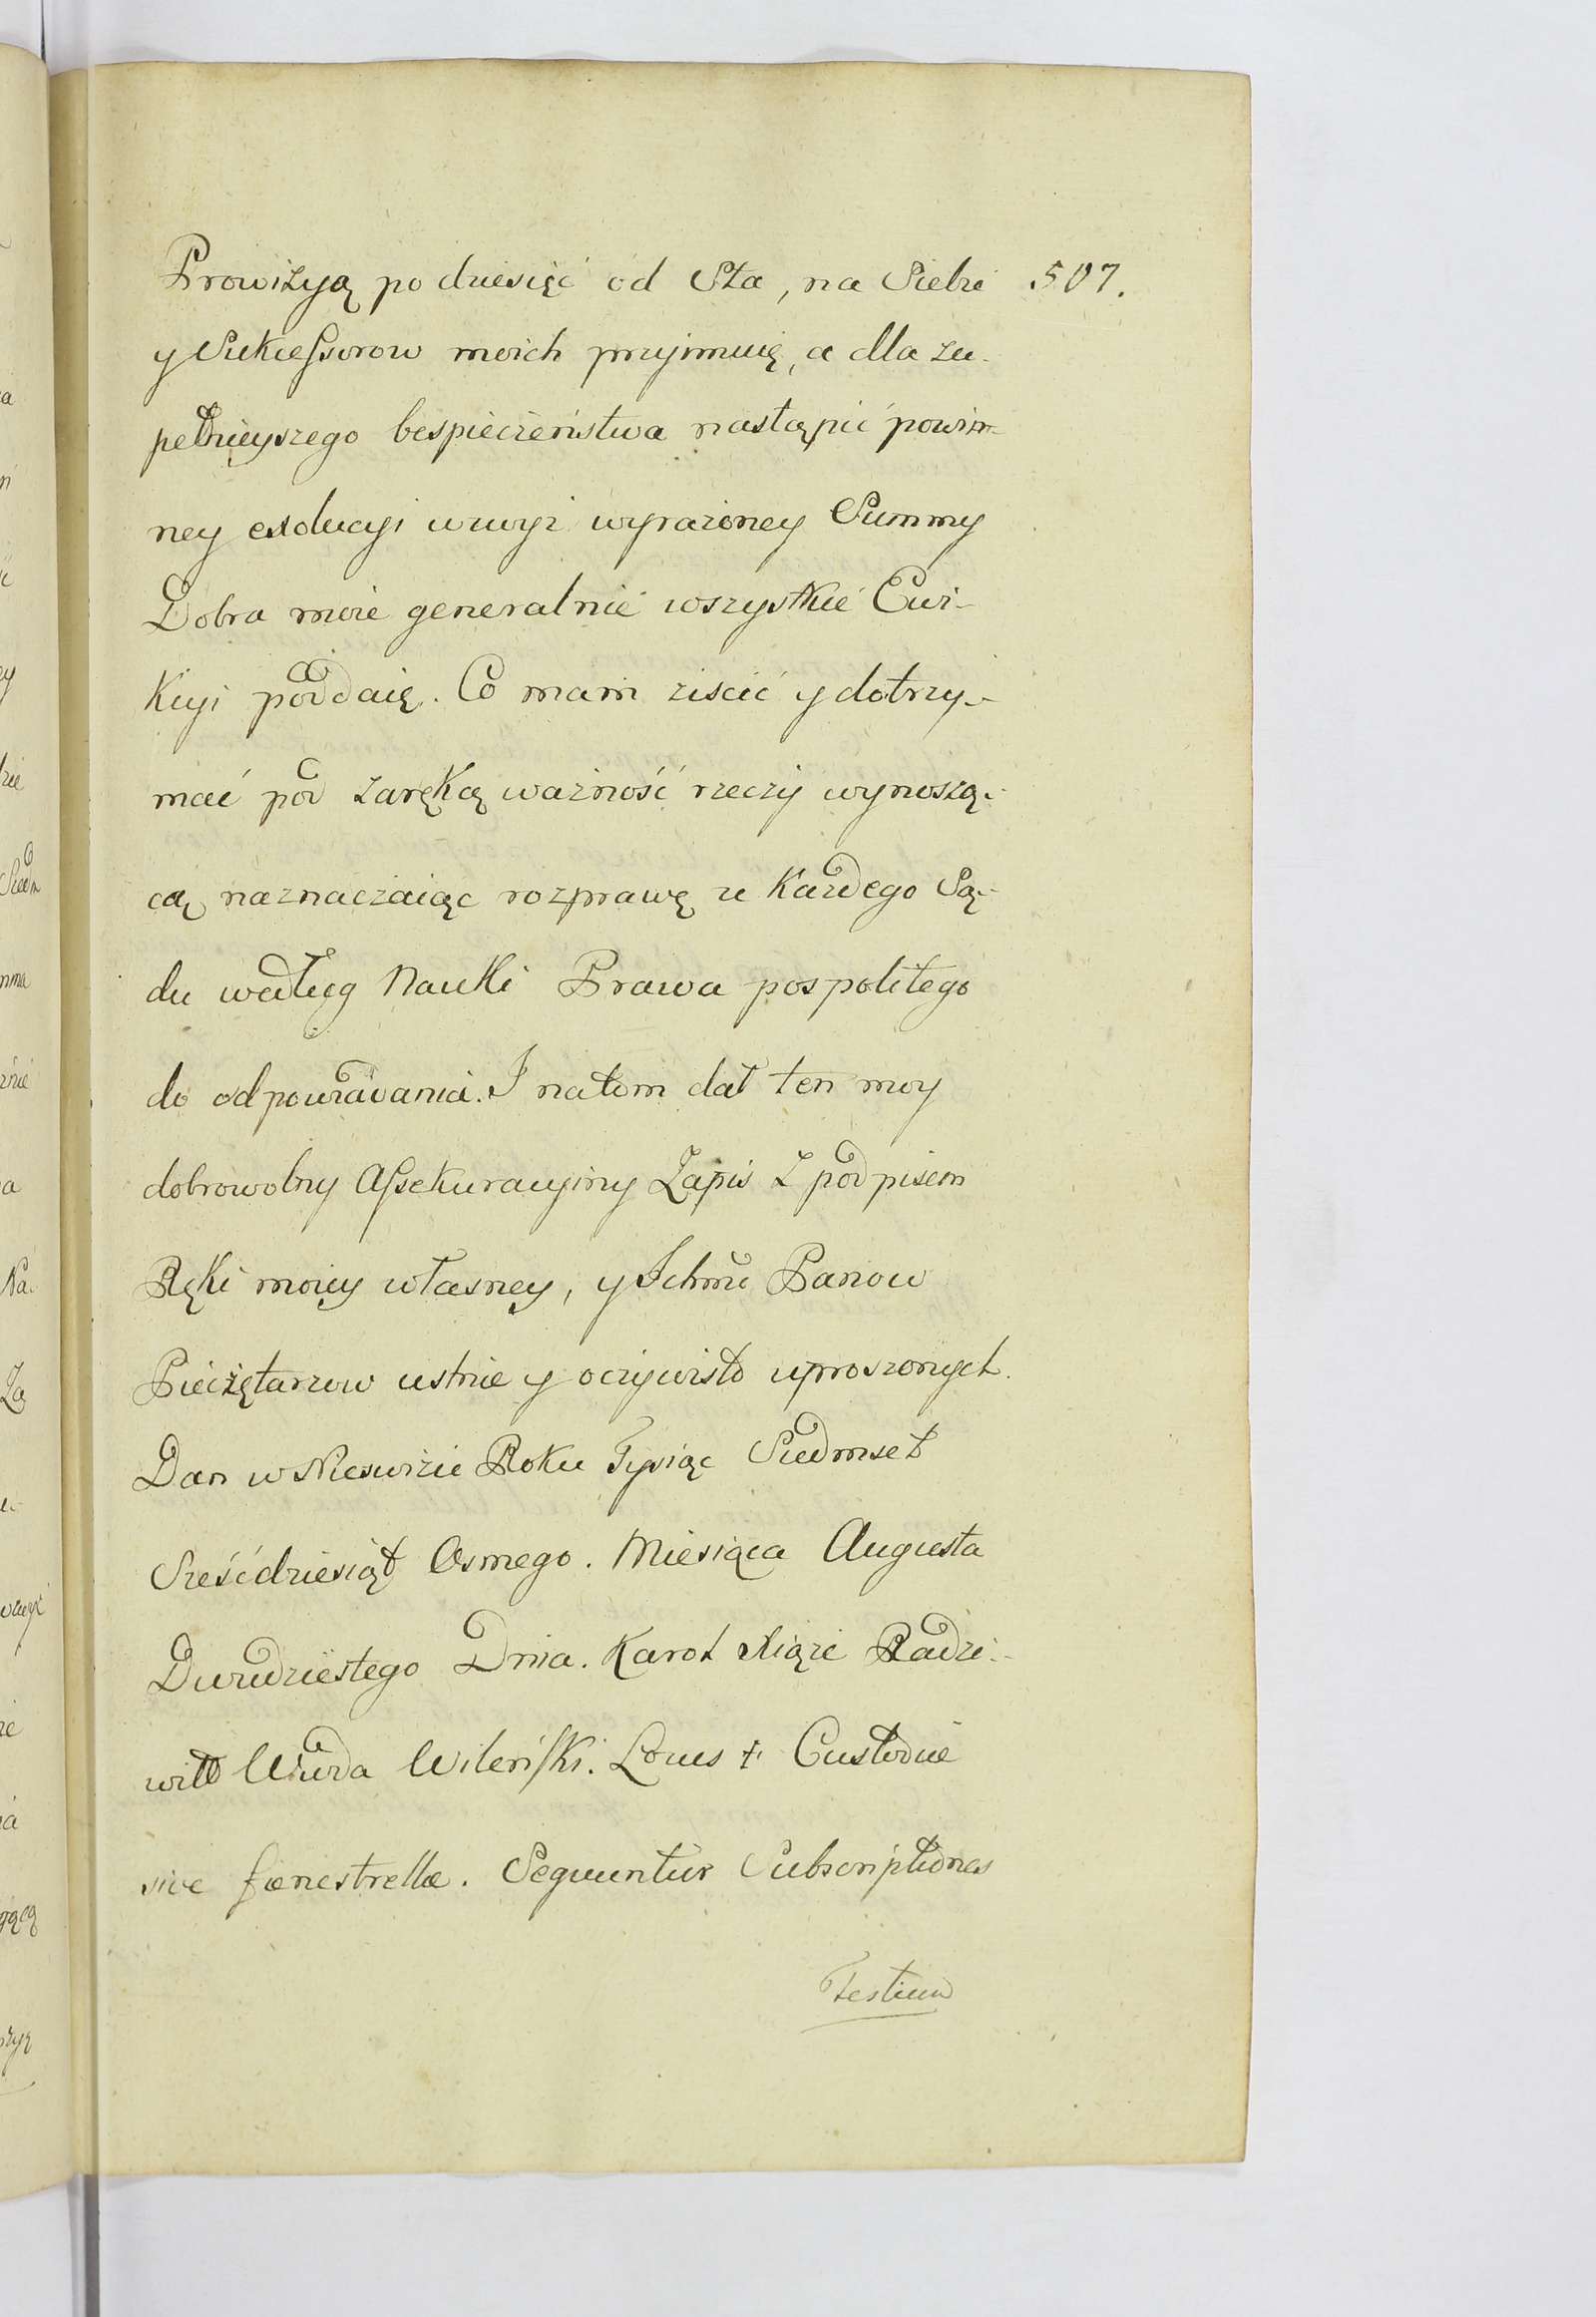 Prowizyą po dziesięć od Sta, na Siebie 507.
y Sukcessorow moich przyimuię, a dla zu-
pełnieyszego bespieczeństwa nastąpić powin-
ney exolucyi wzwyż wyrażoney Summy
Dobra moie generalnie wszystkie Ewi-
kcyi poddaię. Co mam ziścić y dotrzy-
mać pod zaręką ważność rzeczy wynoszą-
cą naznaczaiąc rozprawę u każdego Są-
du według Nauki Prawa pospolitego
do odpowiadania. I natom dał ten moy
dobrowolny Assekuracyiny Zapis z podpisem
Ręki moiey własney, y Ichmć Panow
Pieczętarzow ustnie y oczywisto uproszonych.
Dan w Nieswiżu Roku Tysiąc Siedmset
Sześćdziesiąt Osmego. Miesiąca Augusta
Dwudziestego Dnia. Karol Xiąże Radzi-
wiłł Wwda Wileński. Locus + Custodiæ
sive fenestrellæ. Sequuntur Subscriptiones
Testium